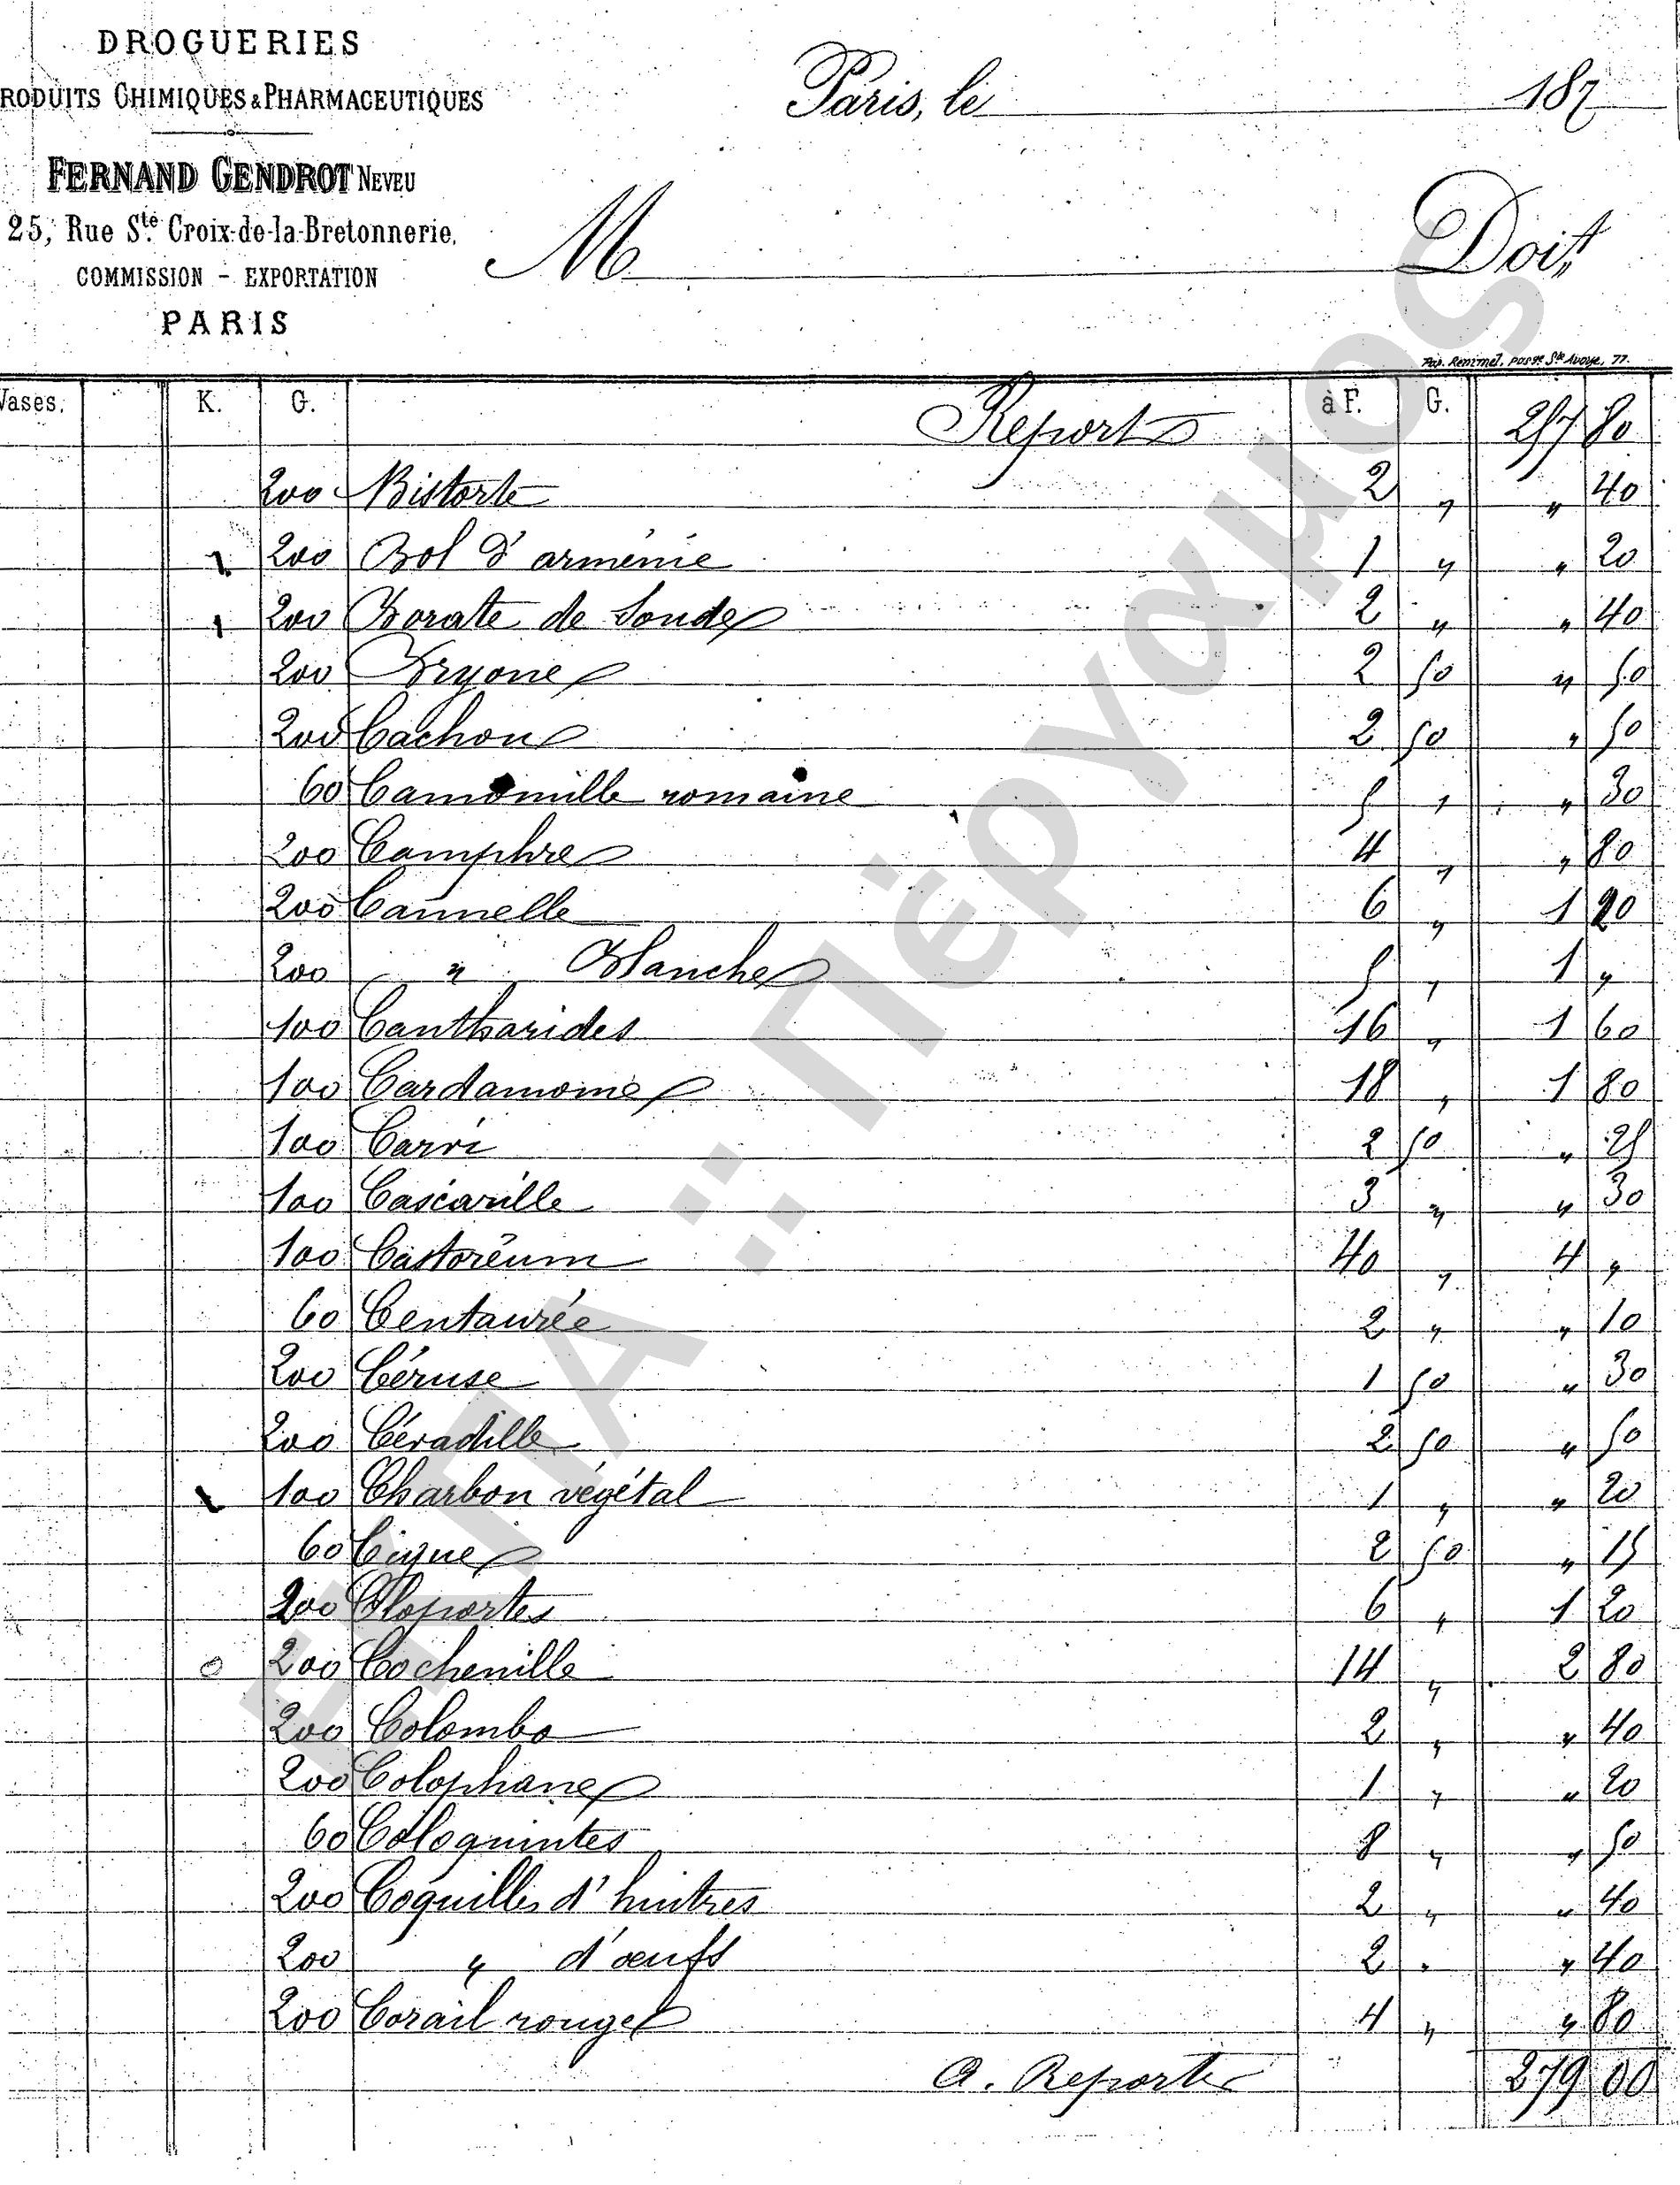 DROGUERIES
RODUITS CHIMIQUES & PHARMACEUTIQUES
FERNAND GENDROT NEVEU
25, Rue Ste. Croix-de-la-Bretonnerie,
COMMISSION - EXPORTATION
PARIS
Paris, le 187
M Doit
Pap. Remmel. passge Ste Avoye, 77.
Vases. K. G. à F. G.
Report 257 80
200 Bistorte 2 " " 40
1 200 Bol d'arménie 1 " " 20
1 200 Borate de Soude 2 " " 40
200 Bryone 2 50 " 50
200 Cachou 2 50 " 50
60 Camomille romaine 5 " " 30
200 Camphre 4 " " 80
200 Cannelle 6 " 1 20
200 " Blanche 5 " 1 "
100 Cantharides 16 " 1 60
100 Cardamome 18 " 1 80
100 Carvi 2 50 " 25
100 Cascarille 3 " " 30
100 Castoréum 40 " 4 "
60 Centaurée 2 " " 10
200 Céruse 1 50 " 30
200 Cévadille 2 50 " 50
1 100 Charbon végétal 1 " " 20
60 Cigue 2 50 " 15
200 Cloportes 6 " 1 20
0 200 Cochenille 14 " 2 80
200 Colombo 2 " " 40
200 Colophane 1 " " 20
60 Coloquintes 8 " " 50
200 Coquilles d'huitres 2 " " 40
200 " d'œufs 2 " " 40
200 Corail rouge 4 " " 80
A. Reporter 279 00
ΕΚΠΑ :: Πέργαμος